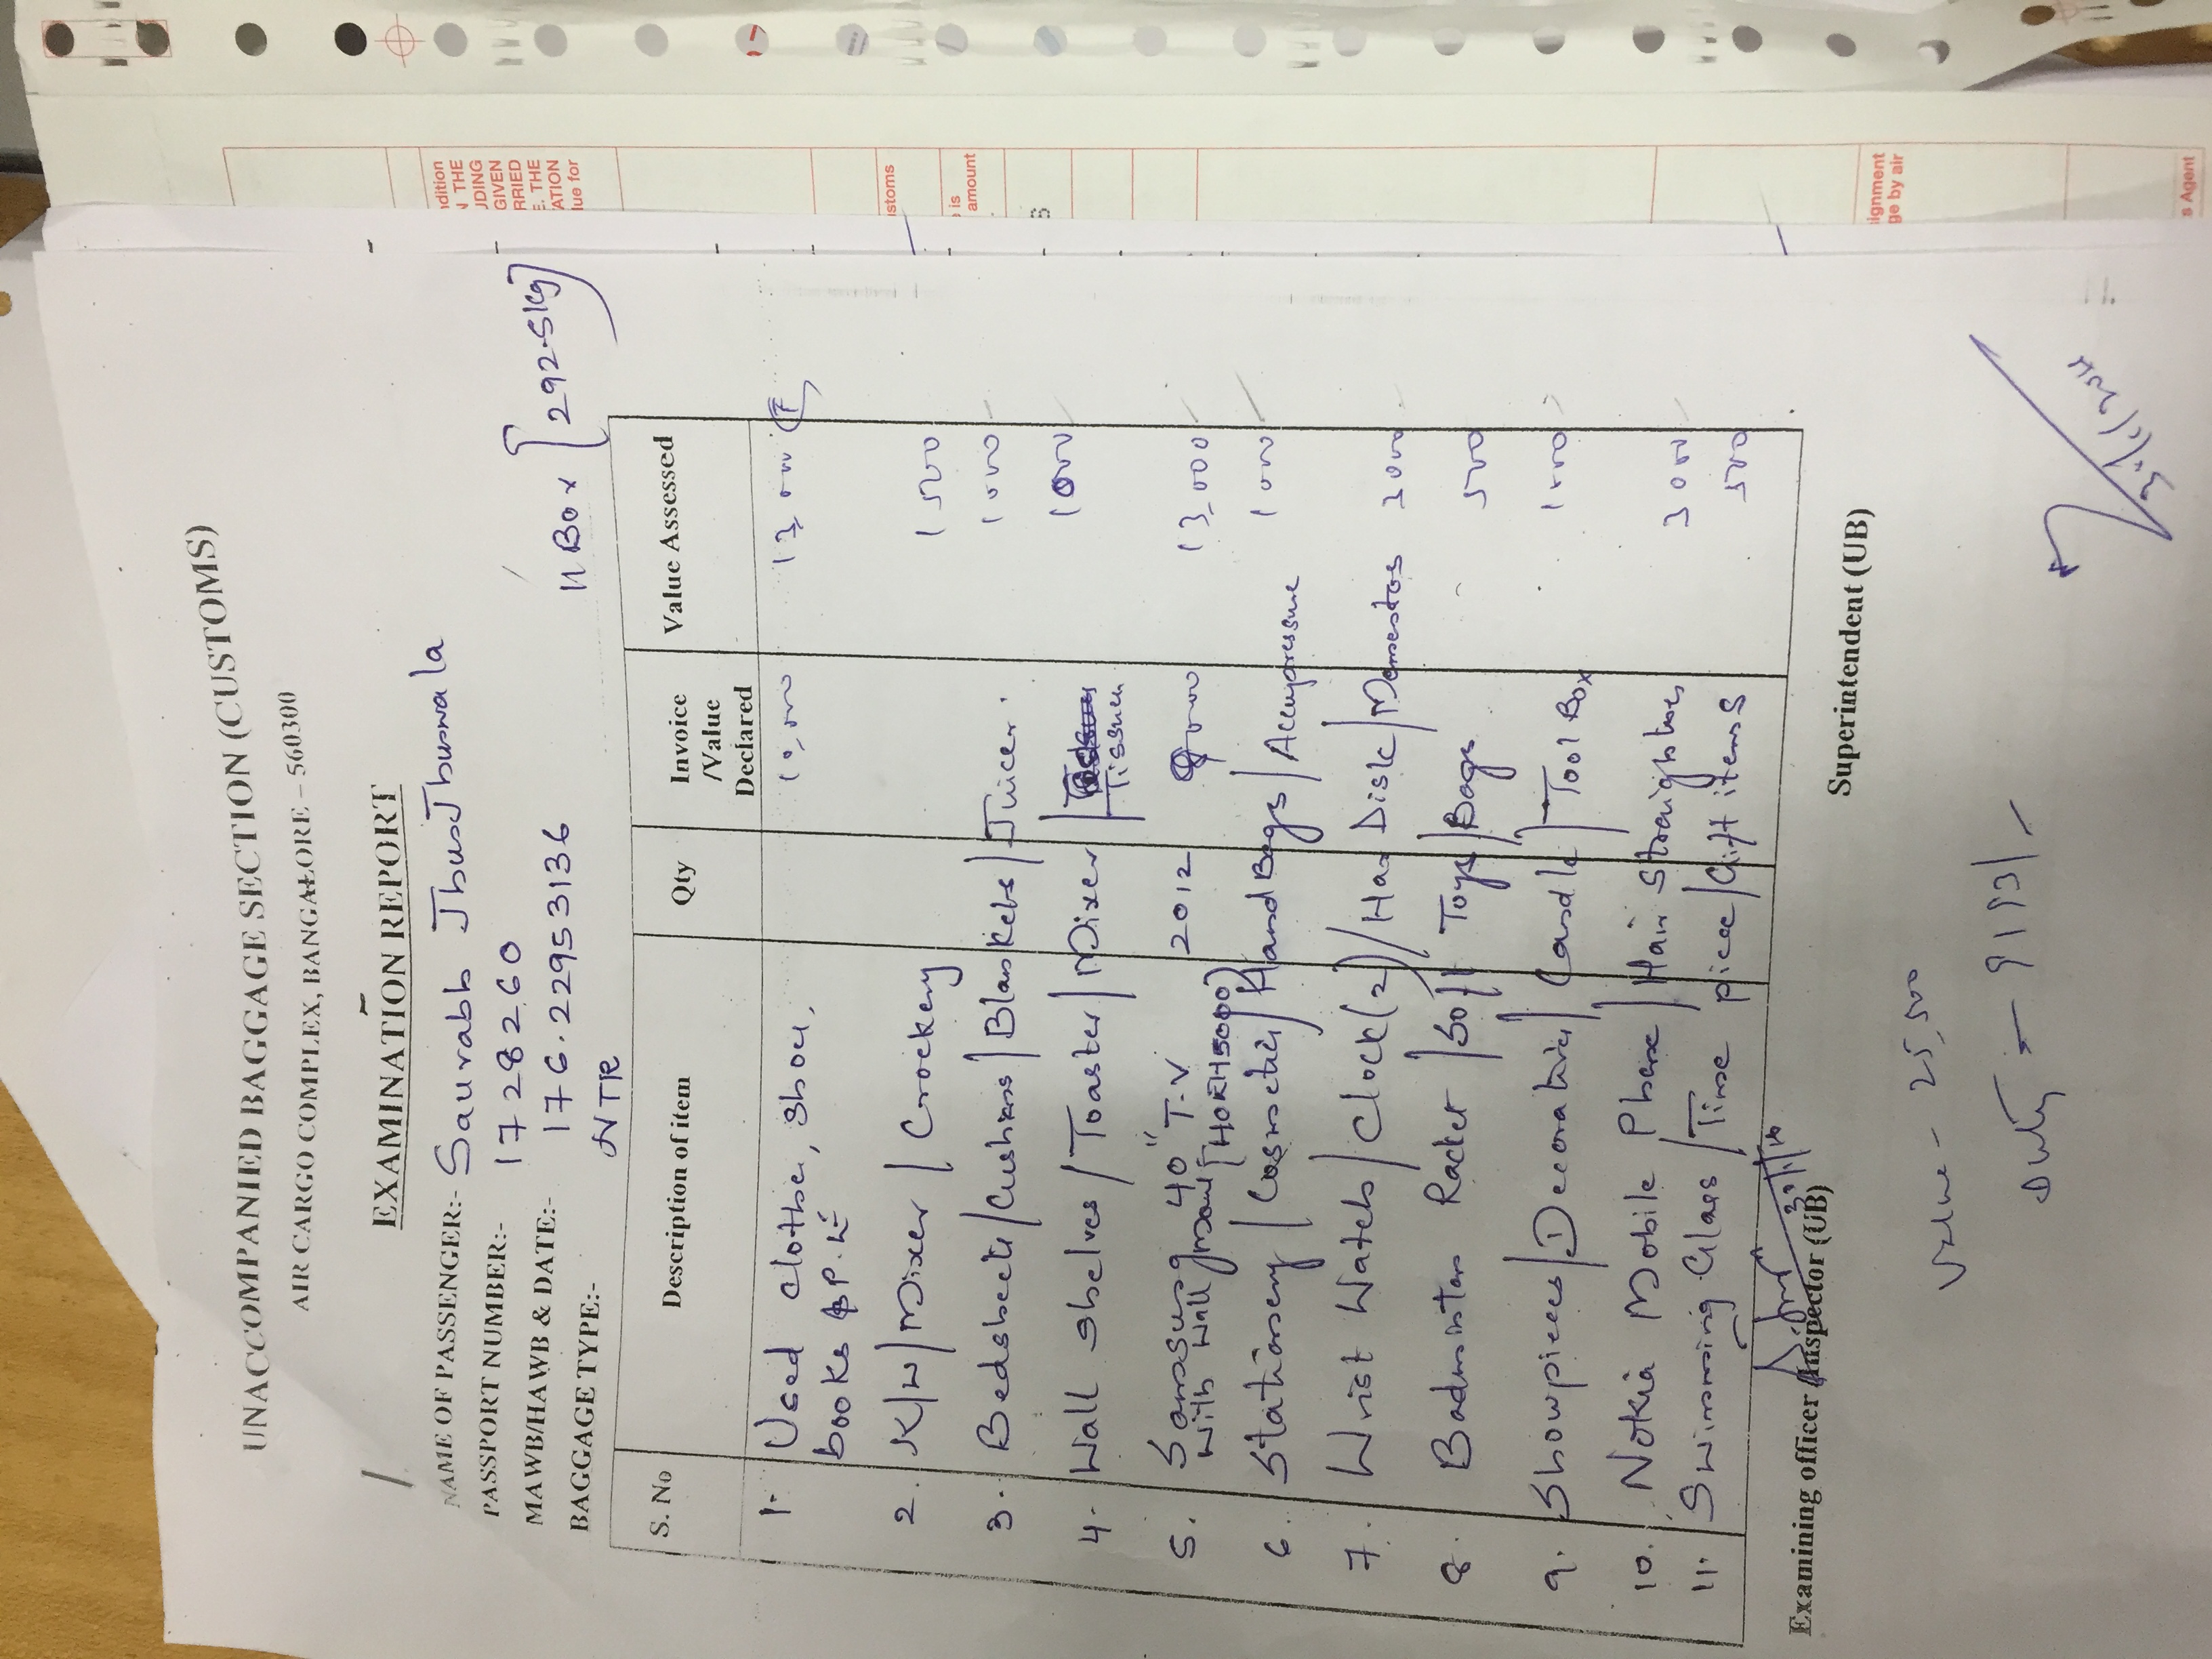 UNACCOMPANIED BAGGAGE SECTION (CUSTOMS)
AIR CARGO COMPLEX, BANGALORE – 560300
EXAMINATION REPORT
NAME OF PASSENGER:- Saurabh JhunJhunwala
PASSPORT NUMBER:- 1728260
MAWB/HAWB & DATE:- 176.22953136
11 Box [292.5kg]
BAGGAGE TYPE:- NTR
S. No Description of item Qty Invoice /Value Declared Value Assessed
1. Used clothes, shoes, 10,000 13,000 F
books & P.E
2. K/W/Mixer/Crockery 1500
3. Bedsheets/Cushions/Blankets/Juicer. 1000
4. Wall shelves/Toaster/Mixer/ 1000
Tissues
5. Samsung 40" T.V 2012 9000 13,000
with wall Mount [40EH5000]
6. Stationery/Cosmetics/Hand Bags/Accupressure 1000
7. Wrist Watch/Clock(2)/Har Disk/Momentos 3000
8. Badminton Racket/Soft Toys/Bags 500
9. Showpieces/Decorative/Candle/Tool Box 1000
10. Nokia Mobile Phone/Hair Straightner 3000
11. Swimming Glass/Time piece/Gift items 500
Examining officer /Inspector (UB)
Superintendent (UB)
Value - 25,500
Duty - 9193/-
ndition
N THE
UDING
GIVEN
RRIED
E. THE
ATION
lue for
ustoms
is
amount
signment
ge by air
s Agent